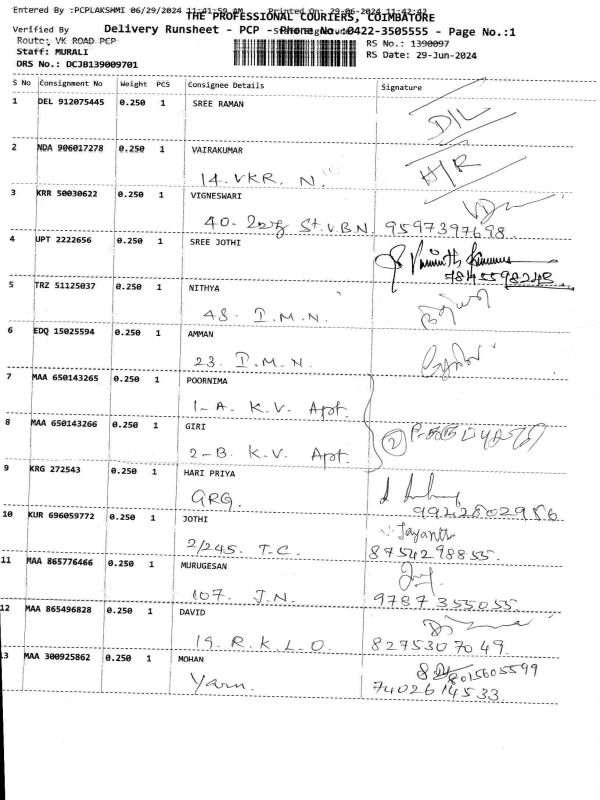 Entered By :PCPLAKSHMI 06/29/2024 11:41:59 AM Printed On: 29-06-2024 11:43:42
THE PROFESSIONAL COURIERS, COIMBATORE
Verified By Delivery Runsheet - PCP - Phone No.:0422-3505555 - Page No.:1
Route: VK ROAD PCP RS No.: 1390097
Staff: MURALI RS Date: 29-Jun-2024
DRS No.: DCJB139009701
S No Consignment No Weight PCS Consignee Details Signature
1 DEL 912075445 0.250 1 SREE RAMAN
D/L
2 NDA 906017278 0.250 1 VAIRAKUMAR
14. VKR. N. H/R
3 KRR 50030622 0.250 1 VIGNESWARI
40. St. V.B.N. 9597397698
4 UPT 2222656 0.250 1 SREE JOTHI
5 TRZ 51125037 0.250 1 NITHYA
48. I.M.N.
6 EDQ 15025594 0.250 1 AMMAN
23. I.M.N.
7 MAA 650143265 0.250 1 POORNIMA
1-A. K.V. Apt.
8 MAA 650143266 0.250 1 GIRI
2-B. K.V. Apt. 2
9 KRG 272543 0.250 1 HARI PRIYA
GRG.
10 KUR 696059772 0.250 1 JOTHI
Jayanth
2/245. T.C. 8754298855.
11 MAA 865776466 0.250 1 MURUGESAN
107. J.N. 9787 355055.
12 MAA 865496828 0.250 1 DAVID
19. R.K.L.O. 8275307049.
13 MAA 300925862 0.250 1 MOHAN
8015605599
Yarn. 7402614533.